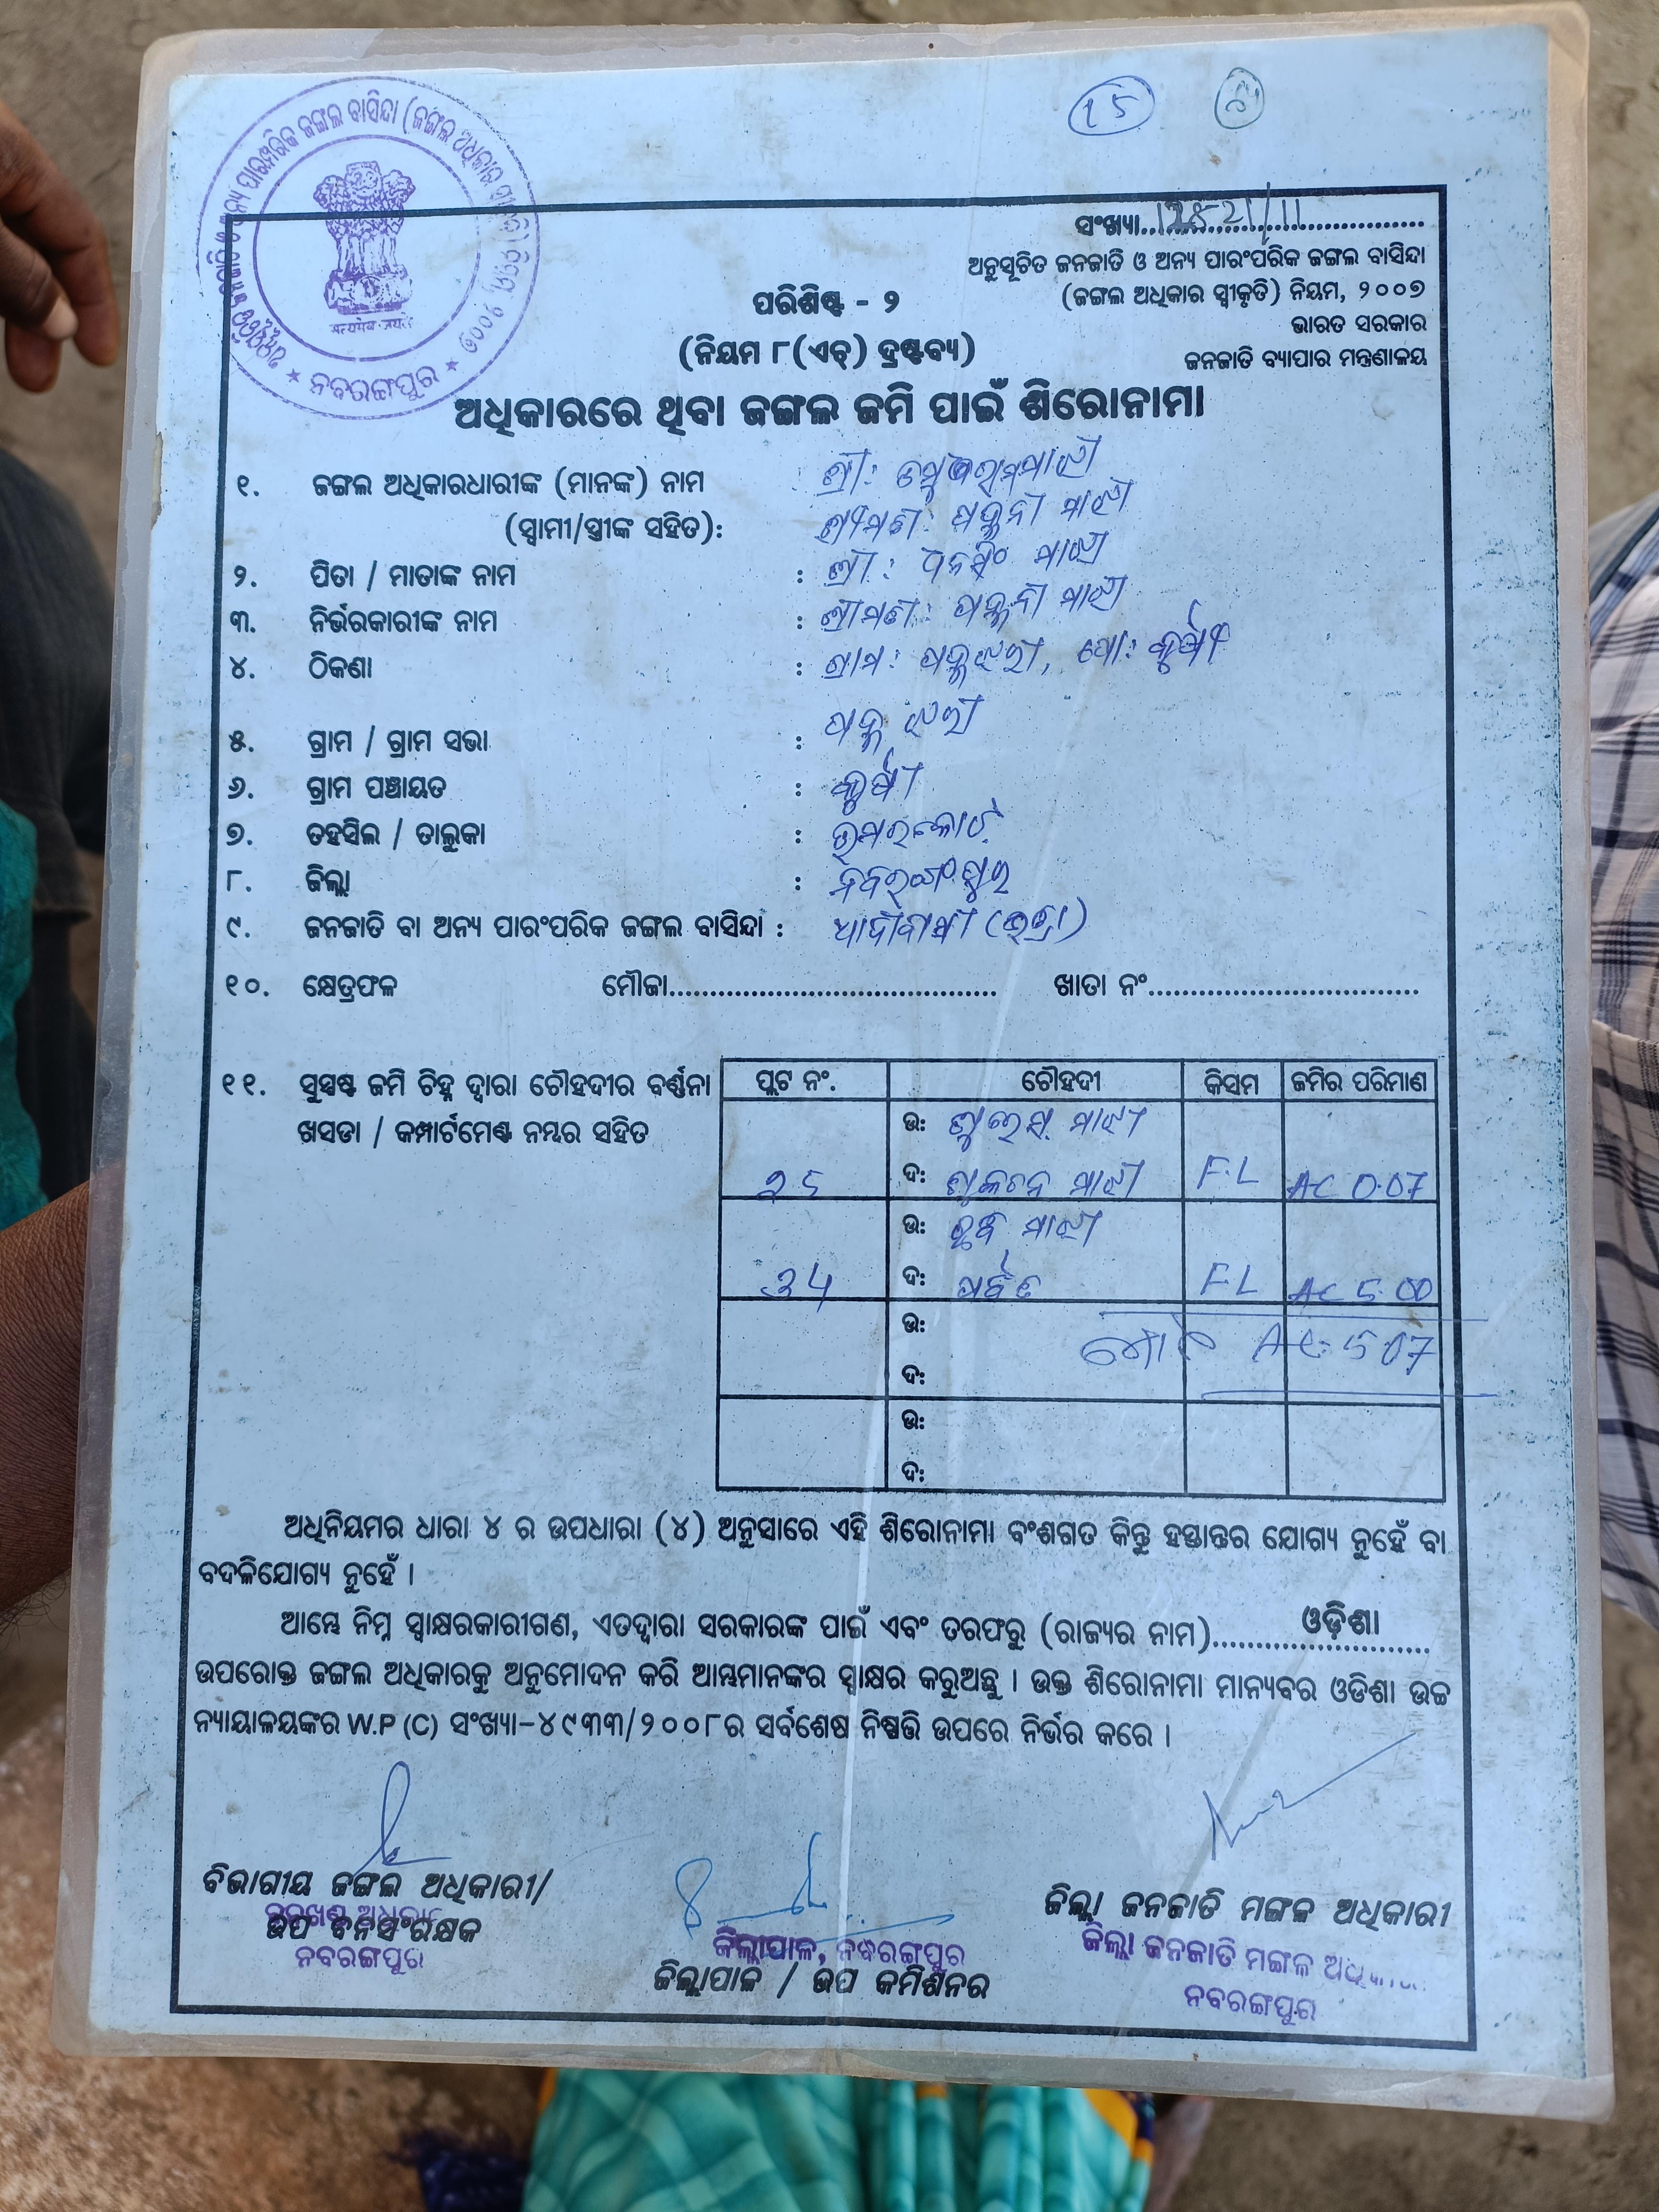 ୧୫
ସଂଖ୍ୟା
ଅନୁସୂଚିତ ଜନଜାତି ଓ ଅନ୍ୟ ପାରଂପରିକ ଜଙ୍ଗଲ ବାସିନ୍ଦା
(ଜଙ୍ଗଲ ଅଧିକାର ସ୍ୱୀକୃତି) ନିୟମ, ୨୦୦୭
ଭାରତ ସରକାର
ଜନଜାତି ବ୍ୟାପାର ମନ୍ତ୍ରଣାଳୟ
ପରିଶିଷ୍ଟ - ୨
(ନିୟମ ୮(ଏଚ୍) ଦ୍ରଷ୍ଟବ୍ୟ)
ସତ୍ୟମେବ ଜୟତେ
★ ନବରଙ୍ଗପୁର ★
ଅଧିକାରରେ ଥିବା ଜଙ୍ଗଲ ଜମି ପାଇଁ ଶିରୋନାମା
୧. ଜଙ୍ଗଲ ଅଧିକାରଧାରୀଙ୍କ (ମାନଙ୍କ) ନାମ : ଶ୍ରୀ: ମାଝୀ
(ସ୍ୱାମୀ/ସ୍ତ୍ରୀଙ୍କ ସହିତ): ଶ୍ରୀମତୀ: ମାଝୀ
୨. ପିତା / ମାତାଙ୍କ ନାମ : ଶ୍ରୀ: ଧନସିଂ ମାଝୀ
୩. ନିର୍ଭରକାରୀଙ୍କ ନାମ : ଶ୍ରୀମତୀ: ମାଝୀ
୪. ଠିକଣା : ଗ୍ରାମ: ପୋ:
୫. ଗ୍ରାମ / ଗ୍ରାମ ସଭା :
୬. ଗ୍ରାମ ପଞ୍ଚାୟତ :
୭. ତହସିଲ / ତାଲୁକା : ଉମରକୋଟ
୮. ଜିଲ୍ଲା : ନବରଂଗପୁର
୯. ଜନଜାତି ବା ଅନ୍ୟ ପାରଂପରିକ ଜଙ୍ଗଲ ବାସିନ୍ଦା : ଆଦୀବାସୀ
୧୦. କ୍ଷେତ୍ରଫଳ ମୌଜା........ ଖାତା ନଂ........
୧୧. ସୁସ୍ପଷ୍ଟ ଜମି ଚିହ୍ନ ଦ୍ୱାରା ଚୌହଦୀର ବର୍ଣ୍ଣନା
ଖସଡା / କମ୍ପାର୍ଟମେଣ୍ଟ ନମ୍ବର ସହିତ
ପ୍ଲଟ ନଂ. ଚୌହଦୀ କିସମ ଜମିର ପରିମାଣ
ଉ: ମାଝୀ
ଦ: ମାଝୀ F.L AC 0.07
ଉ: ମାଝୀ
ଦ: ପର୍ବତ F.L AC 5.00
ଉ: ମୋଟ AC: 5.07
ଦ:
ଉ:
ଦ:
ଅଧିନିୟମର ଧାରା ୪ ର ଉପଧାରା (୪) ଅନୁସାରେ ଏହି ଶିରୋନାମା ବଂଶଗତ କିନ୍ତୁ ହସ୍ତାନ୍ତର ଯୋଗ୍ୟ ନୁହେଁ ବା
ବଦଳିଯୋଗ୍ୟ ନୁହେଁ ।
ଆମ୍ଭେ ନିମ୍ନ ସ୍ୱାକ୍ଷରକାରୀଗଣ, ଏତଦ୍ୱାରା ସରକାରଙ୍କ ପାଇଁ ଏବଂ ତରଫରୁ (ରାଜ୍ୟର ନାମ)....ଓଡ଼ିଶା....
ଉପରୋକ୍ତ ଜଙ୍ଗଲ ଅଧିକାରକୁ ଅନୁମୋଦନ କରି ଆମ୍ଭମାନଙ୍କର ସ୍ୱାକ୍ଷର କରୁଅଛୁ । ଉକ୍ତ ଶିରୋନାମା ମାନ୍ୟବର ଓଡିଶା ଉଚ୍ଚ
ନ୍ୟାୟାଳୟଙ୍କର W.P (C) ସଂଖ୍ୟା-୪୯୩୩/୨୦୦୮ର ସର୍ବଶେଷ ନିଷ୍ପତ୍ତି ଉପରେ ନିର୍ଭର କରେ ।
ବିଭାଗୀୟ ଜଙ୍ଗଲ ଅଧିକାରୀ/
ଉପ ବନସଂରକ୍ଷକ
ନବରଙ୍ଗପୁର
ଜିଲ୍ଲାପାଳ, ନବରଙ୍ଗପୁର
ଜିଲ୍ଲାପାଳ / ଉପ କମିଶନର
ଜିଲ୍ଲା ଜନଜାତି ମଙ୍ଗଳ ଅଧିକାରୀ
ଜିଲ୍ଲା ଜନଜାତି ମଙ୍ଗଳ
ନବରଙ୍ଗପୁର